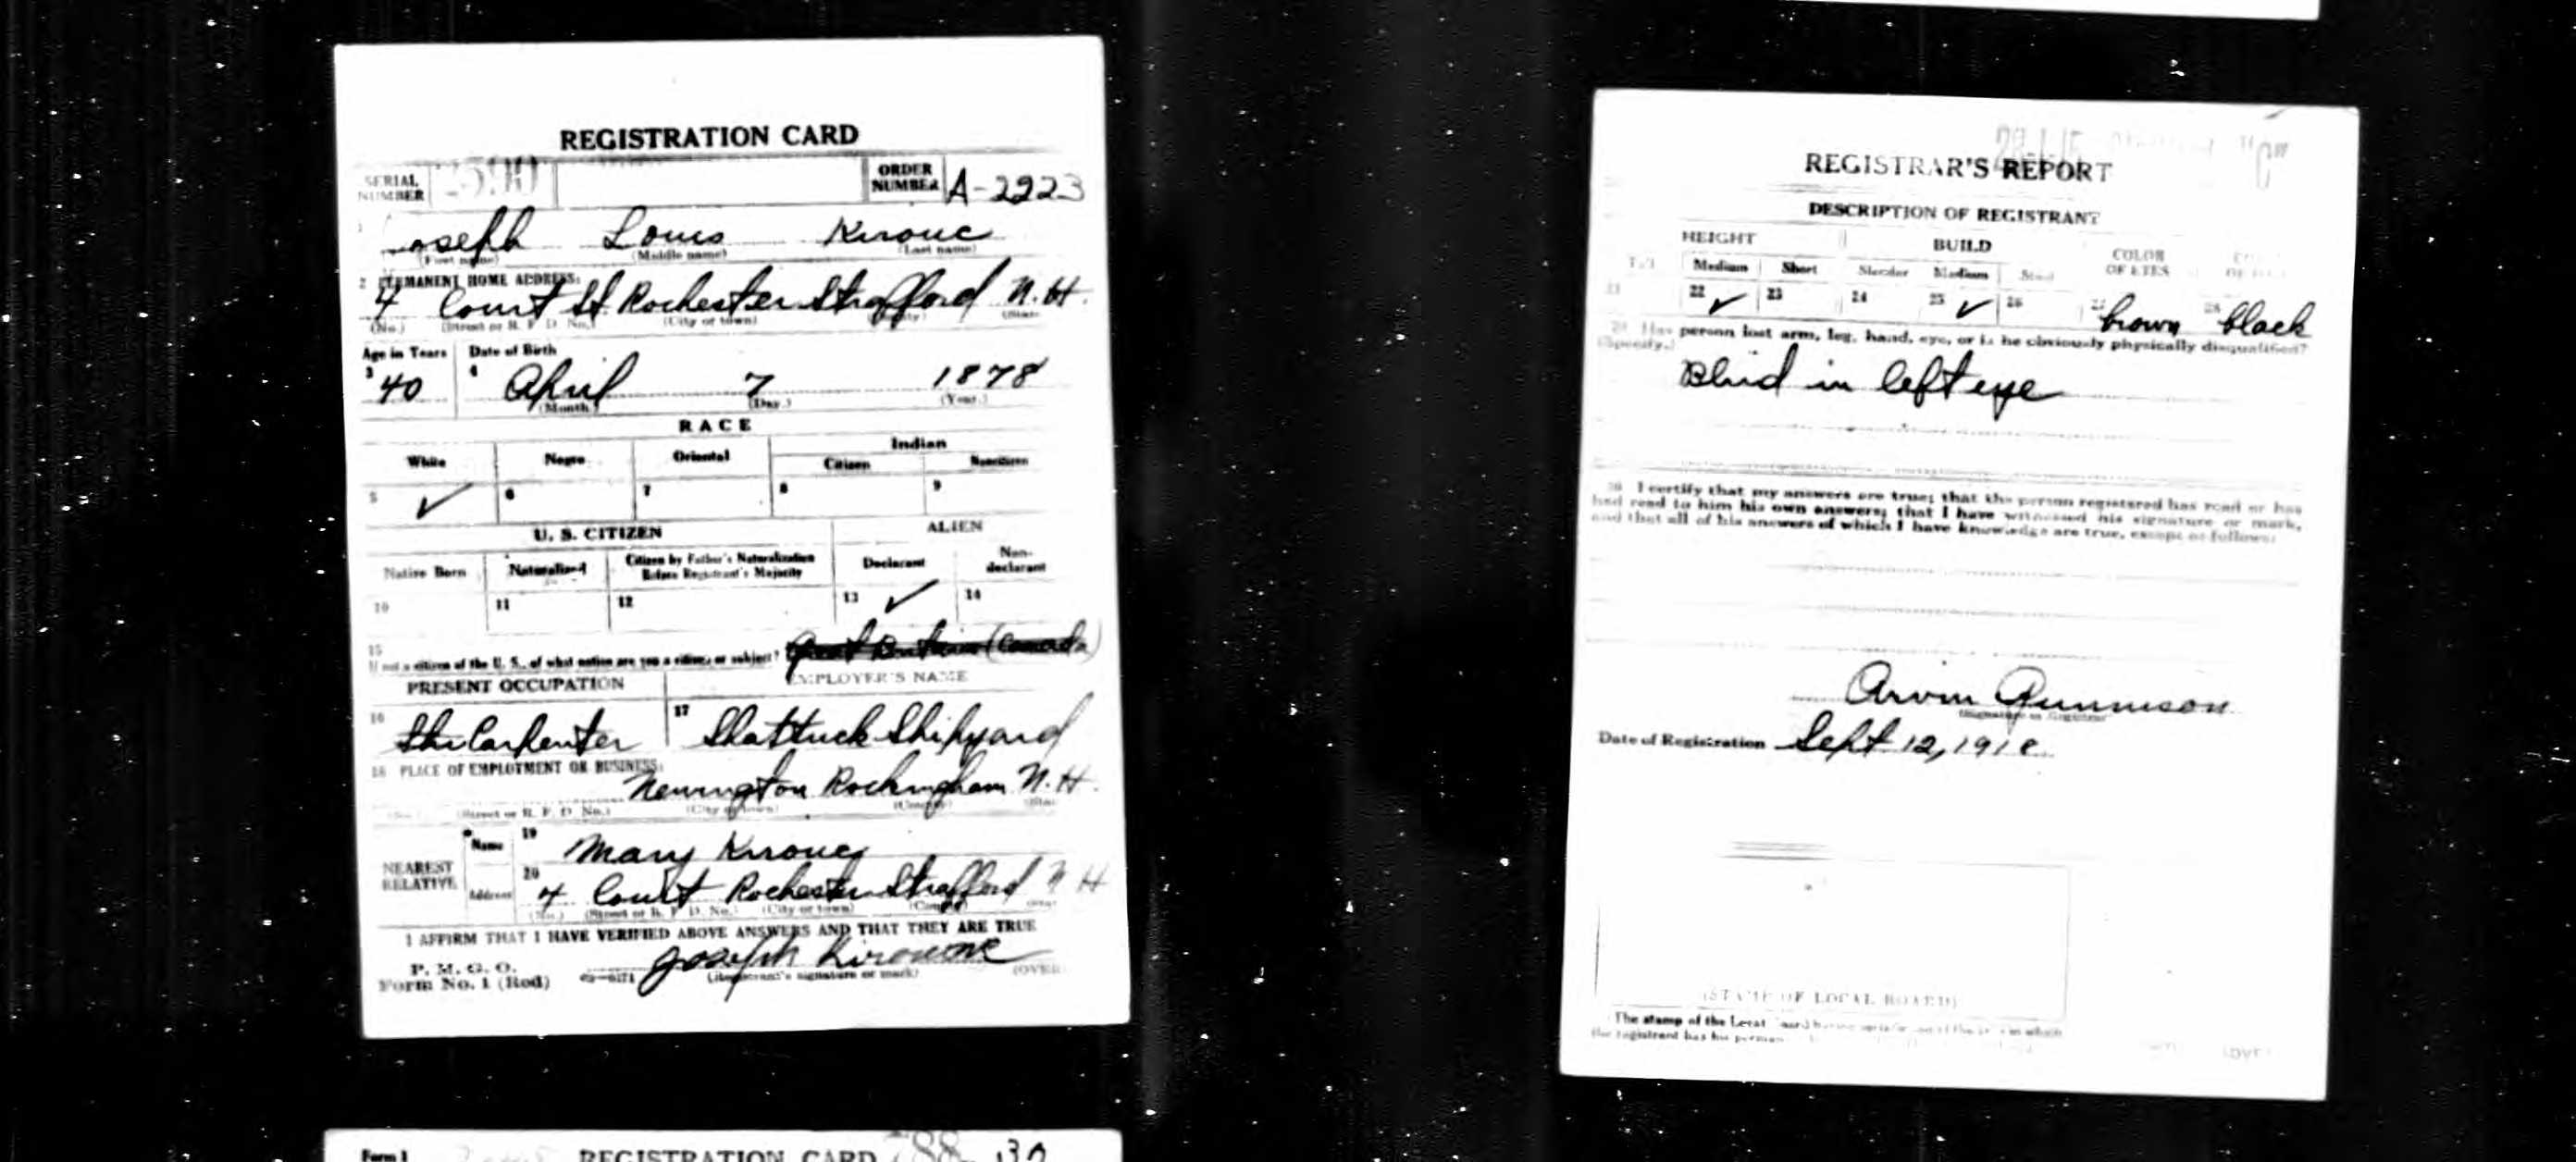 REGISTRATION CARD
SERIAL NUMBER
ORDER NUMBER A-2223
1 Joseph Louis Kirouc
(First name) (Middle name) (Last name)
2 PERMANENT HOME ADDRESS:
4 Court St Rochester Strafford N.H.
(No.) (Street or R. F. D. No.) (City or town) (County) (State)
Age in Years Date of Birth
3 40 4 April 7 1878
(Month) (Day.) (Year.)
RACE
White Negro Oriental Indian
Citizen Noncitizen
5 ✓ 6 7 8 9
U. S. CITIZEN ALIEN
Native Born Naturalized Citizen by Father's Naturalization Before Registrant's Majority Declarant Non-declarant
10 11 12 13 ✓ 14
15 If not a citizen of the U. S., of what nation are you a citizen or subject? Great Britain (Canada)
PRESENT OCCUPATION EMPLOYER'S NAME
16 Shi Carpenter 17 Shattuck Shipyard
18 PLACE OF EMPLOYMENT OR BUSINESS:
Newington Rockingham N.H.
(No.) (Street or R. F. D. No.) (City or town) (County) (State)
NEAREST RELATIVE
Name 19 Mary Kirouc
Address 20 4 Court Rochester Strafford N H
(No.) (Street or R. F. D. No.) (City or town) (County) (State)
I AFFIRM THAT I HAVE VERIFIED ABOVE ANSWERS AND THAT THEY ARE TRUE
P. M. G. O.
Form No. 1 (Red) Joseph
(Registrant's signature or mark) (OVER)
Form 1 REGISTRATION CARD
REGISTRAR'S REPORT "C"
DESCRIPTION OF REGISTRANT
HEIGHT BUILD COLOR OF EYES
Tall Medium Short Slender Medium Stout
21 22 ✓ 23 24 25 ✓ 26 27 brown 28 black
29 Has person lost arm, leg, hand, eye, or is he obviously physically disqualified?
(Specify.)
Blind in left eye
30 I certify that my answers are true; that the person registered has read or has
had read to him his own answers; that I have witnessed his signature or mark,
and that all of his answers of which I have knowledge are true, except as follows:
Arvin Gunnison
(Signature of Registrar)
Date of Registration Sept 12, 1918
(STAMP OF LOCAL BOARD)
The stamp of the Local Board having in which
the registrant has his